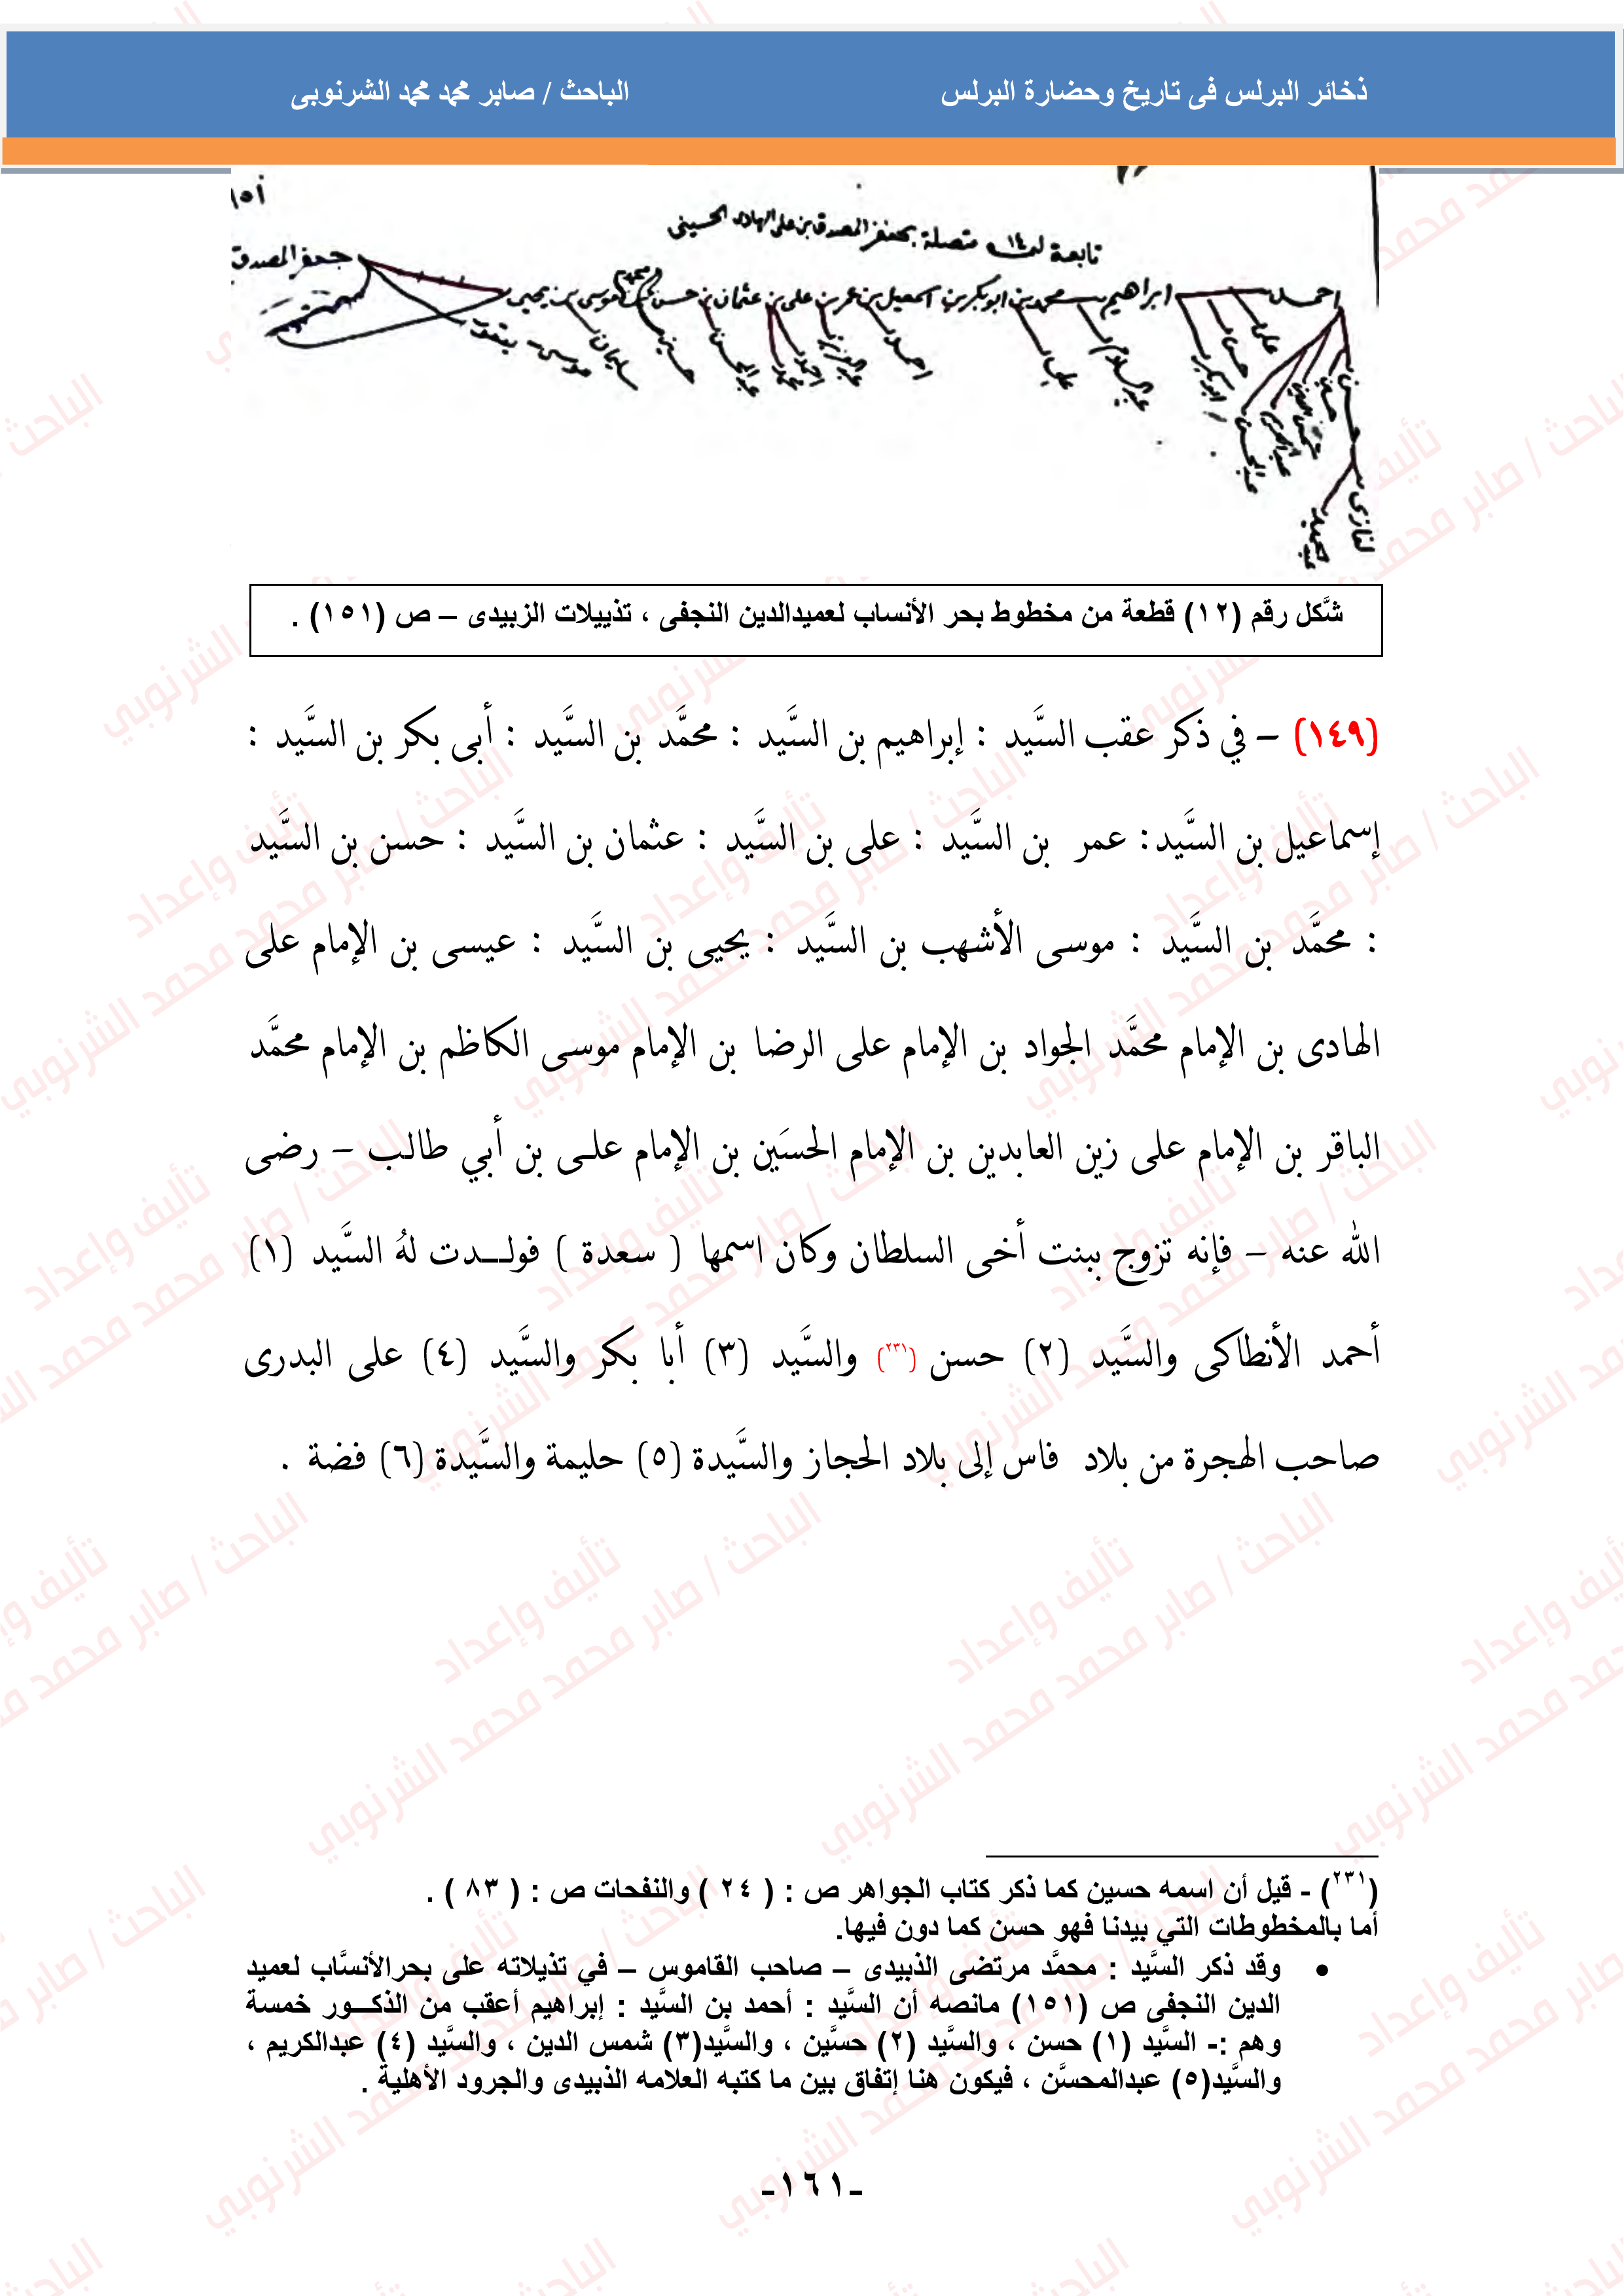 ذخائر البرلس فى تاريخ وحضارة البرلس
الباحث / صابر محمد محمد الشرنوبى
تابعة لمت ١٤ متصلة بجعفر المصدق بن على الهادى الحسينى
احمد ابراهيم محمد بن ابوبكر بن اسمعيل بن عمر بن على بن عثمان بن حسن بن موسى بن يحيى جعفر المصدق
شَّكل رقم (١٢) قطعة من مخطوط بحر الأنساب لعميدالدين النجفى ، تذييلات الزبيدى – ص (١٥١) .
(١٤٩) – في ذكر عقب السَّيد : إبراهيم بن السَّيد : محمَّد بن السَّيد : أبى بكر بن السَّيد :
إسماعيل بن السَّيد: عمر بن السَّيد : على بن السَّيد : عثمان بن السَّيد : حسن بن السَّيد
: محمَّد بن السَّيد : موسى الأشهب بن السَّيد : يحيى بن السَّيد : عيسى بن الإمام على
الهادى بن الإمام محمَّد الجواد بن الإمام على الرضا بن الإمام موسى الكاظم بن الإمام محمَّد
الباقر بن الإمام على زين العابدين بن الإمام الحسَين بن الإمام علـى بن أبي طالب – رضى
الله عنه – فإنه تزوج ببنت أخى السلطان وكان اسمها ( سعدة ) فولـــدت لهُ السَّيد (١)
أحمد الأنطاكى والسَّيد (٢) حسن (٢٣١) والسَّيد (٣) أبا بكر والسَّيد (٤) على البدرى
صاحب الهجرة من بلاد فاس إلى بلاد الحجاز والسَّيدة (٥) حليمة والسَّيدة (٦) فضة .
(٢٣١) - قيل أن اسمه حسين كما ذكر كتاب الجواهر ص : ( ٢٤ ) والنفحات ص : ( ٨٣ ) .
أما بالمخطوطات التي بيدنا فهو حسن كما دون فيها.
• وقد ذكر السَّيد : محمَّد مرتضى الذبيدى – صاحب القاموس – في تذيلاته على بحرالأنسَّاب لعميد
الدين النجفى ص (١٥١) مانصه أن السَّيد : أحمد بن السَّيد : إبراهيم أعقب من الذكـــور خمسة
وهم :- السَّيد (١) حسن ، والسَّيد (٢) حسَّين ، والسَّيد(٣) شمس الدين ، والسَّيد (٤) عبدالكريم ،
والسَّيد(٥) عبدالمحسَّن ، فيكون هنا إتفاق بين ما كتبه العلامه الذبيدى والجرود الأهلية .
-١٦١-